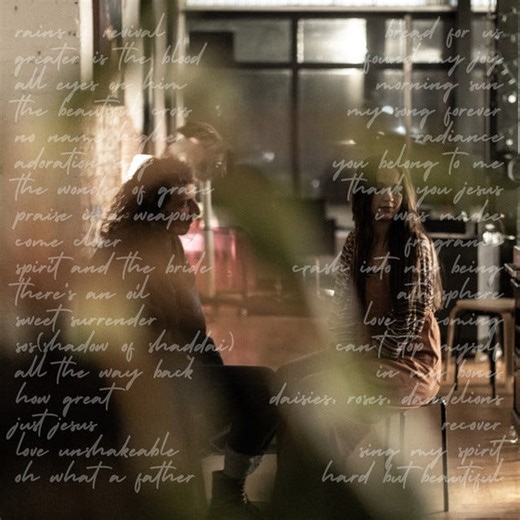 rains of revival
greater is the blood
all eyes on him
the beautiful cross
no name higher
adoration
the wonder of grace
praise is a weapon
come closer
spirit and the bride
there's an oil
sweet surrender
sos(shadow of shaddai)
all the way back
how great
just jesus
love unshakeable
oh what a father
bread for us
found my
morning sun
my song forever
radiance
you belong to me
thank you jesus
i was made
fragrance
crash into my being
atmosphere
love coming
can't stop myself
in my bones
daisies, roses, dandelions
recover
sing my spirit
hard but beautiful